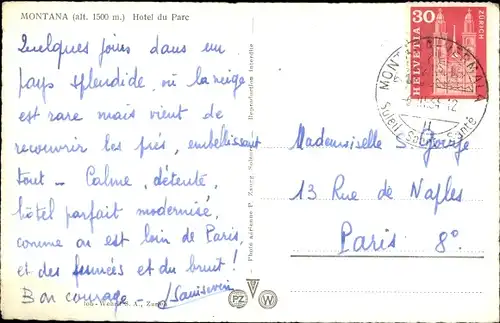 MONTANA (alt. 1500 m.) Hotel du Parc
Quelques jours dans un
pays splendide, où la neige
est rare mais vient de
recouvrir les prés, embellissant
tout - Calme, détente,
hôtel parfait modernisé,
comme on est loin de Paris,
et des fumées et du bruit !
Bon courage -
Reproduction interdite
30
HELVETIA
ZÜRICH
MONTANA-VERMALA
Soleil Santé
Mademoiselle
13 Rue de Naples
Paris 8°
PZ W